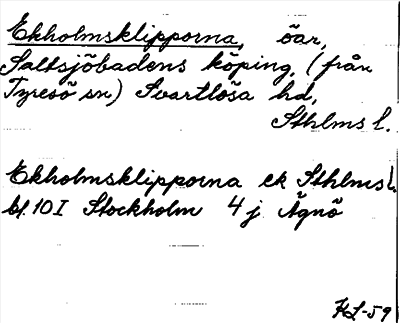 Ekholmsklipporna, öar,
Saltsjöbadens köping, (från
Tyresö sn) Svartlösa hd,
Sthlms l.
Ekholmsklipporna ek Sthlms l.
bl. 10 I Stockholm 4 j Ägnö
HL-59